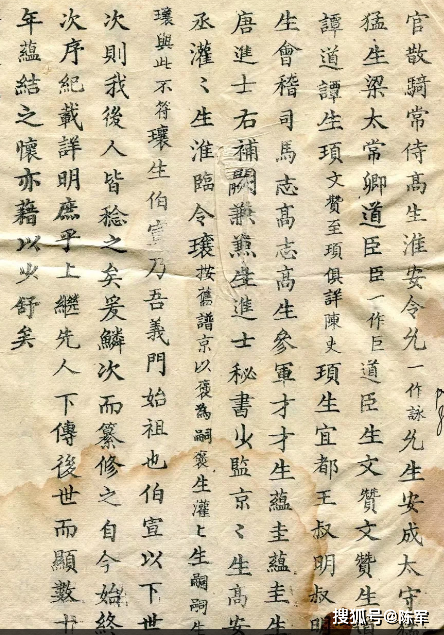 官散騎常侍髙生淮安令兊一作詠兊生安成太守
猛生梁太常卿道臣臣一作巨道臣生文贊文贊生
譚道譚生頊文贊至頊俱詳陳史頊生宜都王叔明叔明
生會稽司馬志髙志髙生參軍才才生蘊圭蘊圭生
唐進士右補闕兼兼生進士秘書少監京〻生高安
丞灌〻生淮臨令瓌按舊譜京以褒為嗣褒生灌〻生嗣嗣生
瓌與此不符瓌生伯宣乃吾義門始祖也伯宣以下世
次則我後人皆稔之矣爰鱗次而纂修之自今始終
次序紀載詳明庶乎上繼先人下傳後世而顯數十
年蘊結之懷亦藉以少舒矣
搜狐号@陈军